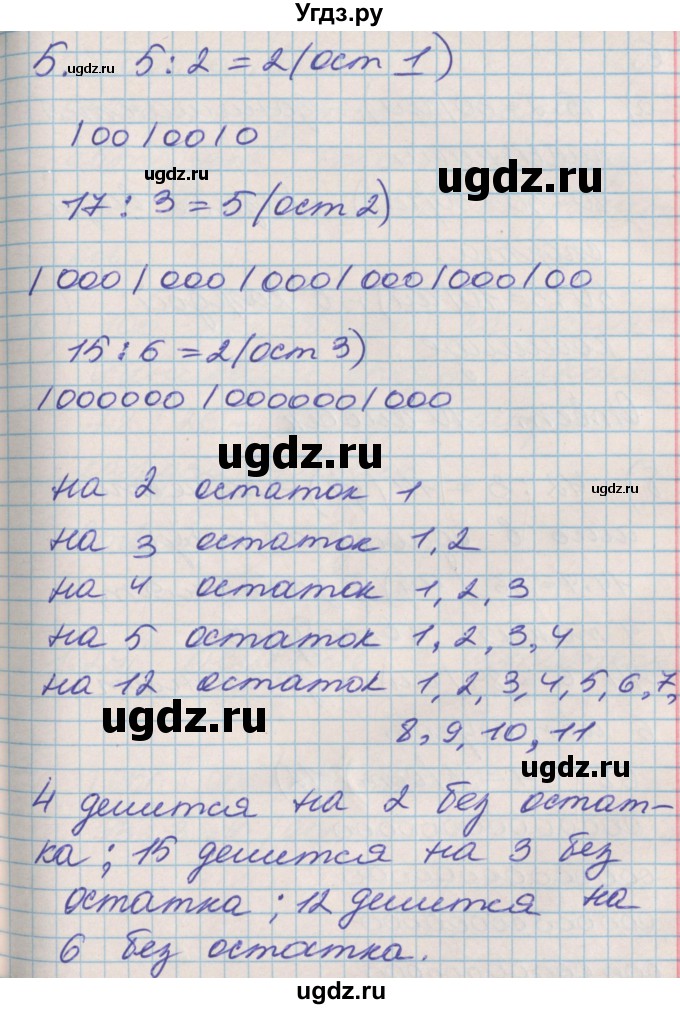 Угдз.ру
5. 5 : 2 = 2 (ост 1)
ugdz.ru
/00/00/0
ugdz.ru
ugdz.ru
17 : 3 = 5 (ост 2)
/000/000/000/000/000/00
15 : 6 = 2 (ост 3)
/000000/000000/000
ugdz.ru
на 2 остаток 1
ugdz.ru
на 3 остаток 1, 2
на 4 остаток 1, 2, 3
на 5 остаток 1, 2, 3, 4
на 12 остаток 1, 2, 3, 4, 5, 6, 7,
ugdz.ru
8, 9, 10, 11
ugdz.ru
4 делится на 2 без остат-
ка; 15 делится на 3 без
остатка; 12 делится на
6 без остатка.
ugdz.ru